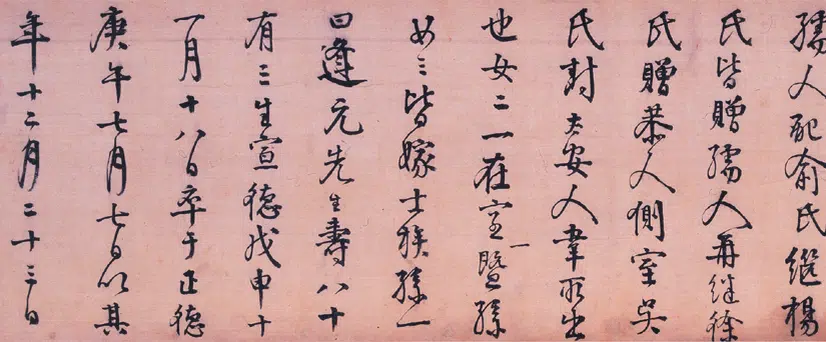 孺人配俞氏繼楊
氏皆贈孺人再繼徐
氏贈恭人側室吳
氏封太安人韋所出
也女二一在室一暨孫
女三皆嫁士族孫一
曰逢元先生壽八十
有三生宣德戊申十
一月十八日卒于正德
庚午七月七日以其
年十二月二十三日